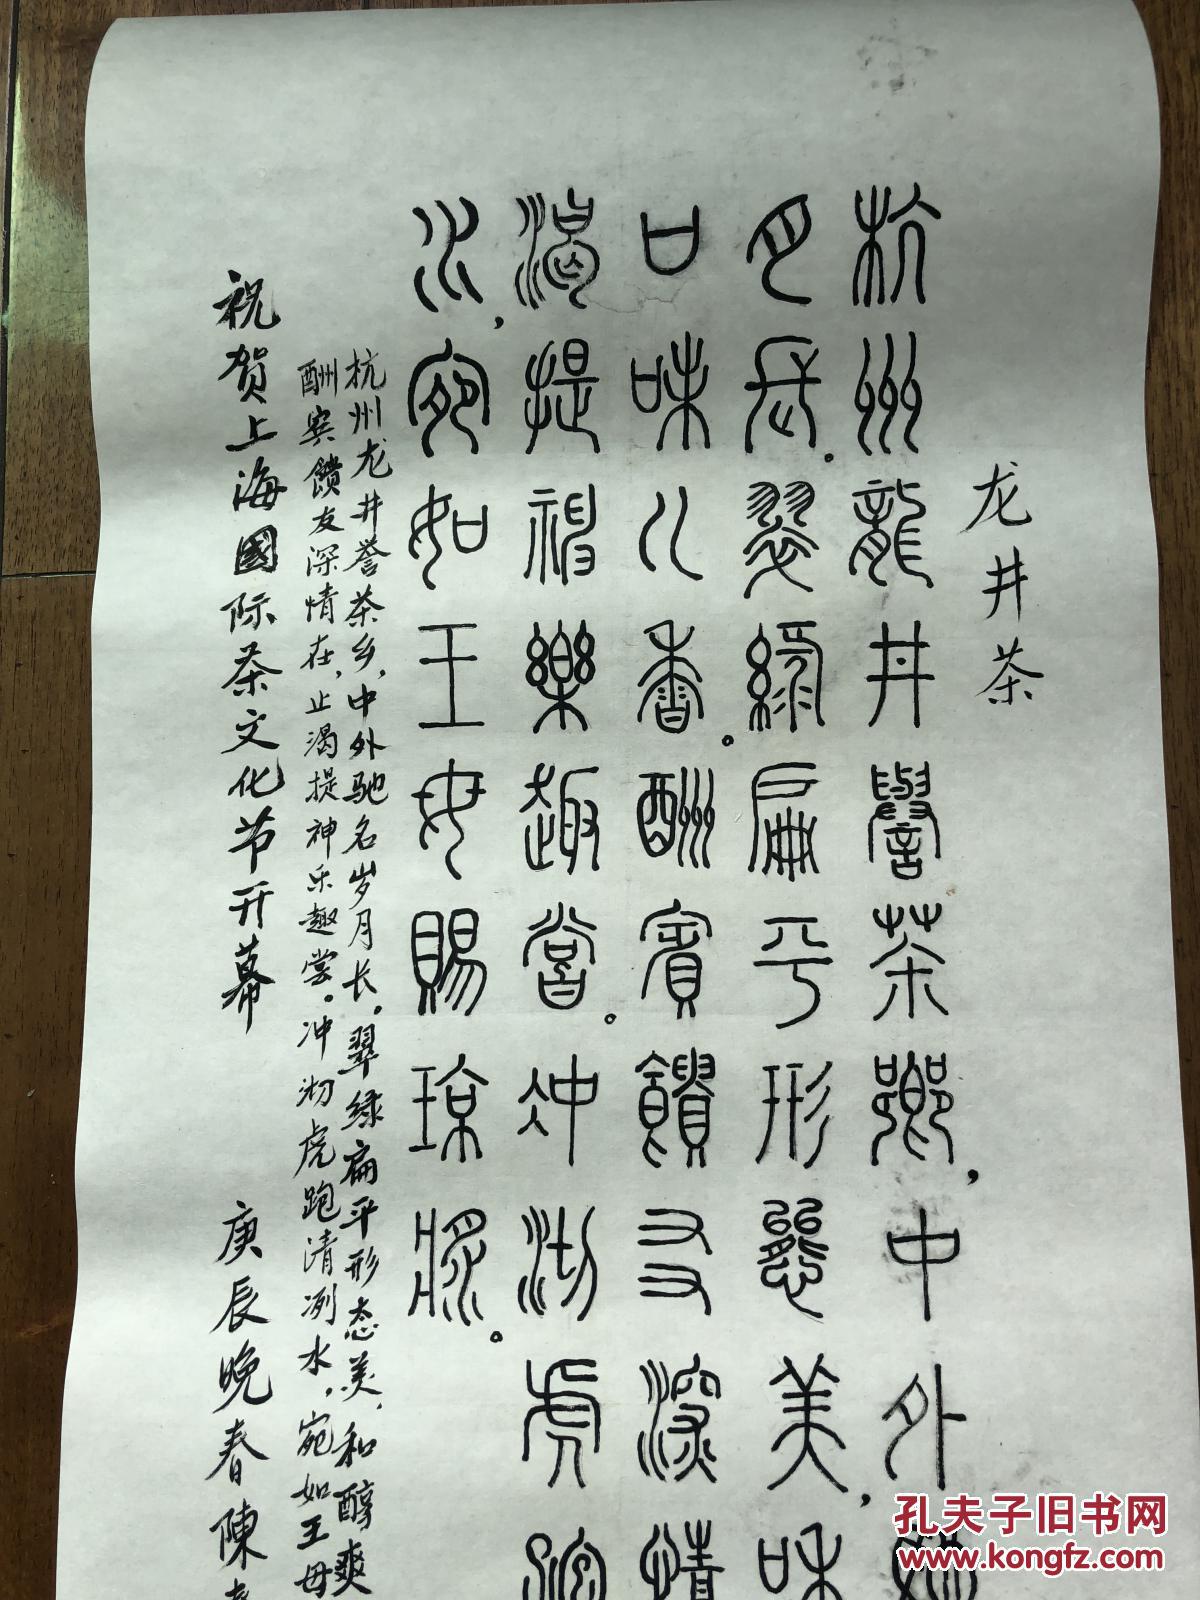 龙井茶
杭州龍井譽茶鄉，中外馳
月長。翠綠扁平形態美，和
口味八香。酬賓饋友深情
渴提神樂趣嘗。沖沏虎跑
水，宛如王母賜瓊漿。
杭州龙井誉茶乡，中外驰名岁月长。翠绿扁平形态美，和醇爽
酬宾馈友深情在，止渴提神乐趣尝。冲沏虎跑清冽水，宛如王母
祝贺上海國际茶文化节开幕
庚辰晚春陳
孔夫子旧书网
www.kongfz.com